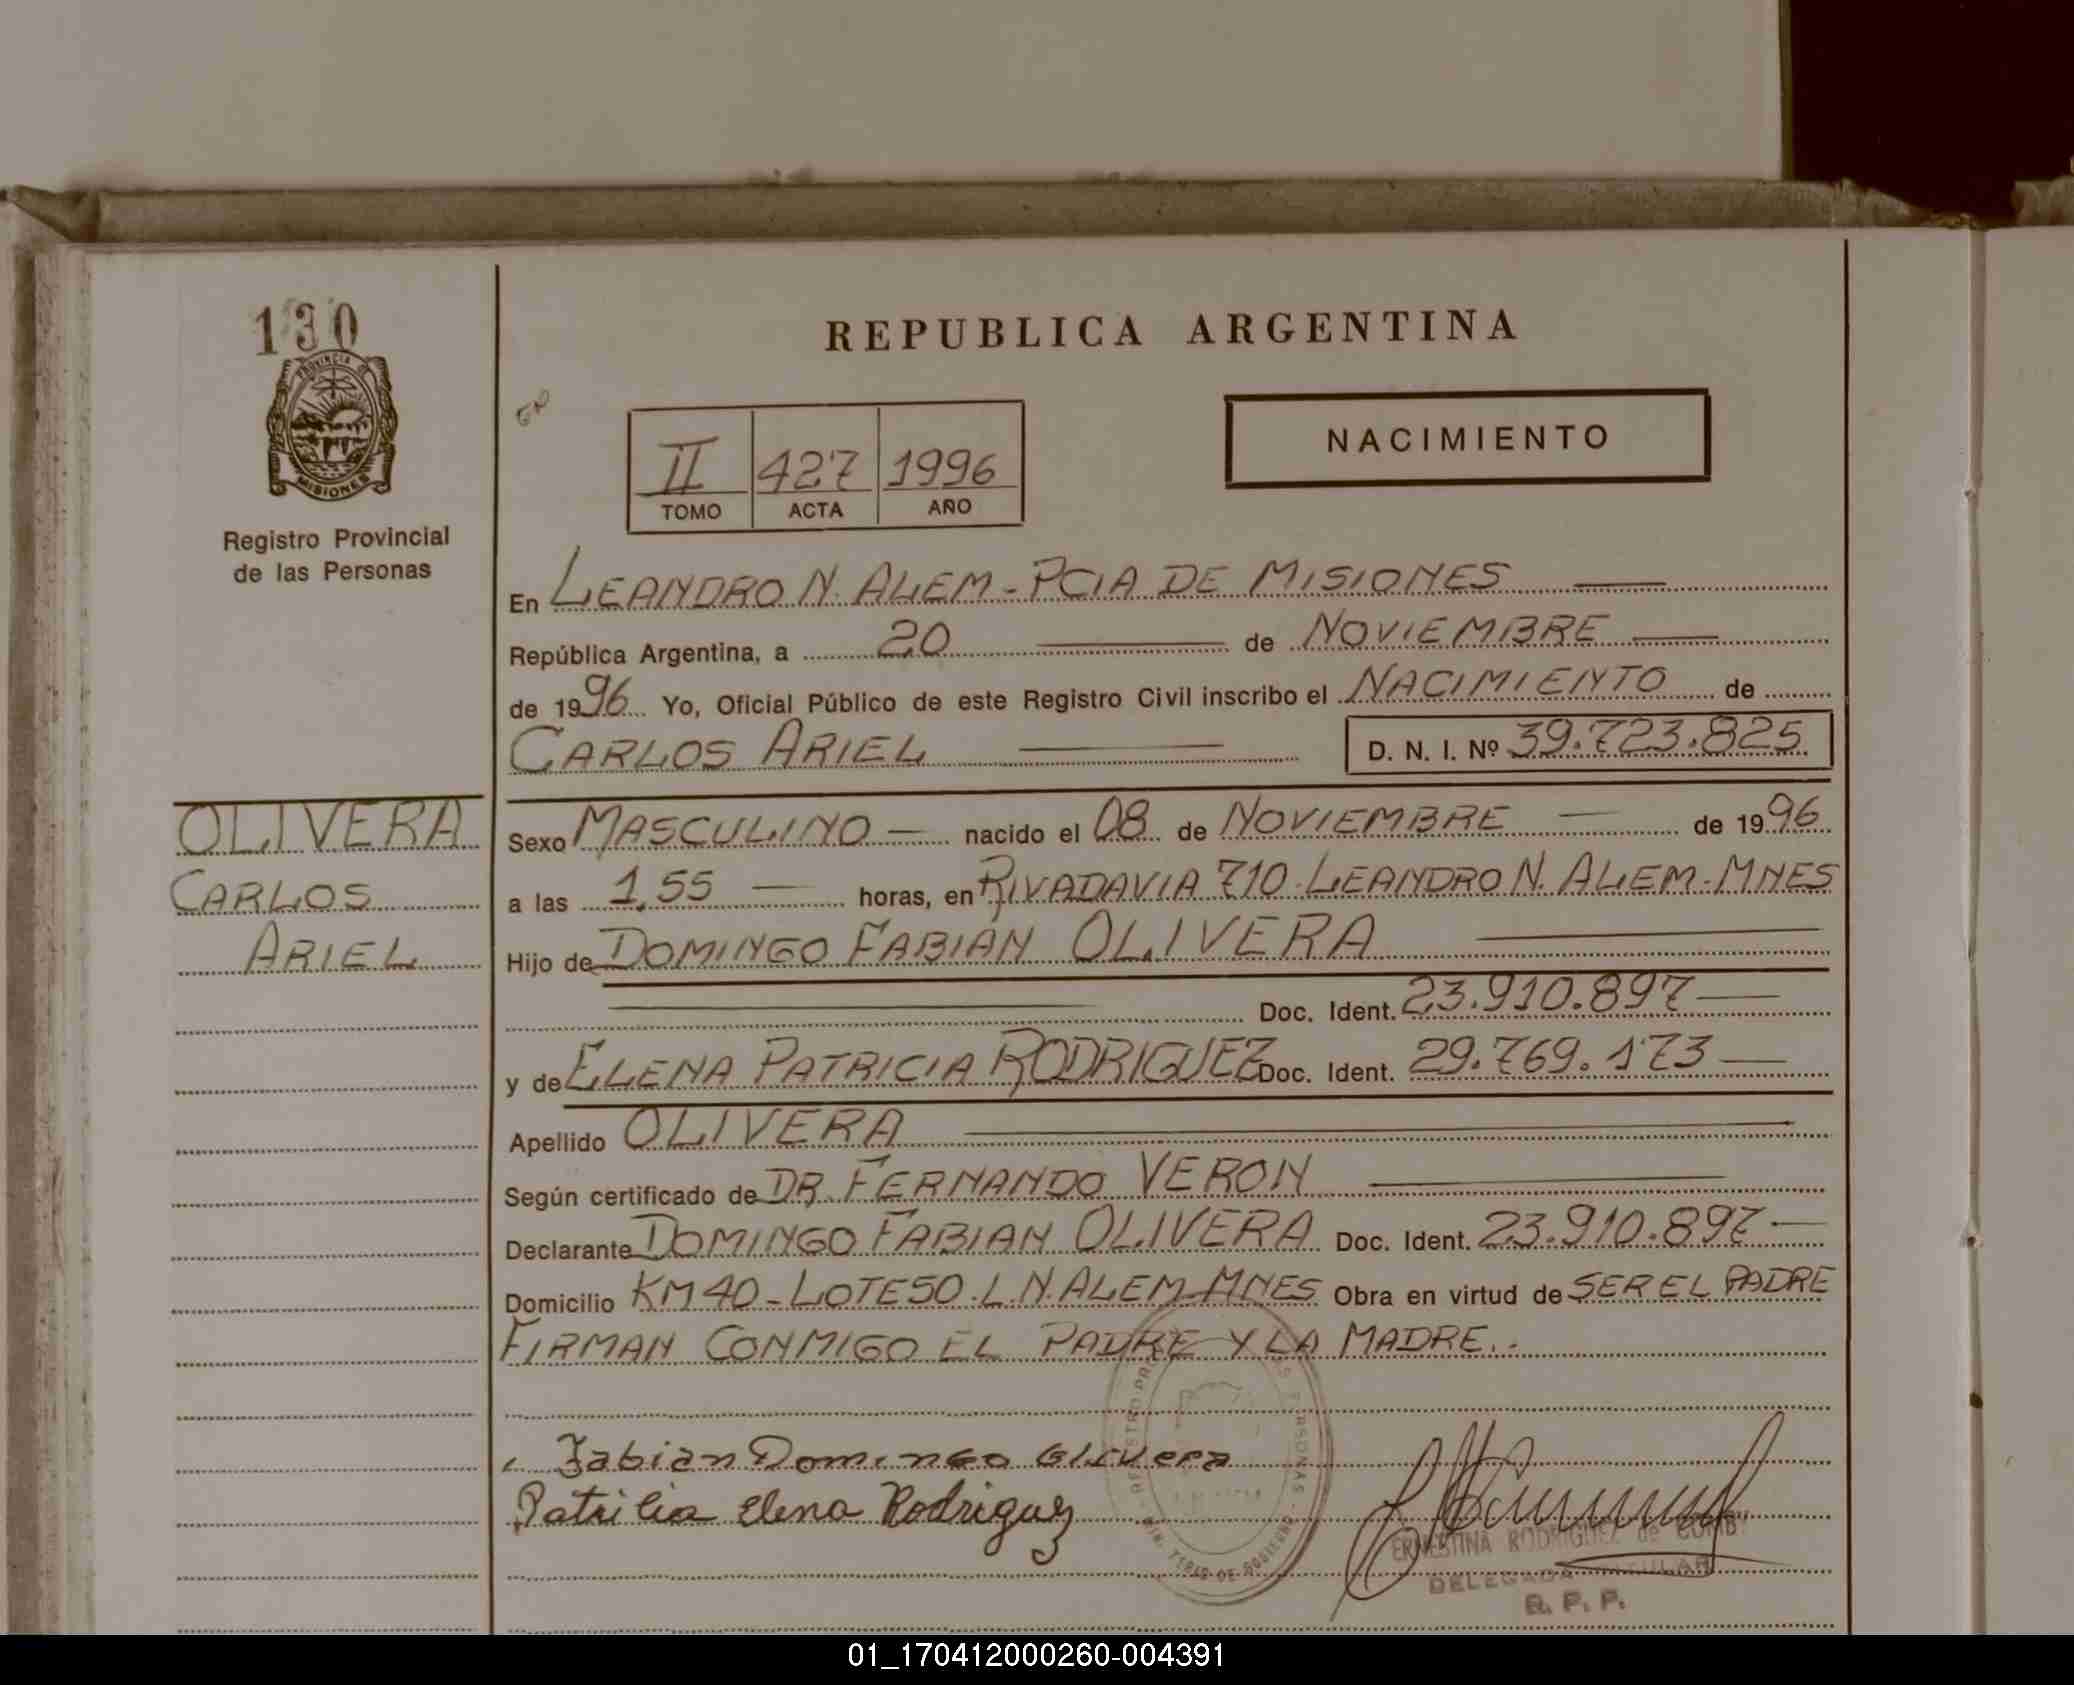 130
PROVINCIA
MISIONES
Registro Provincial
de las Personas
REPUBLICA ARGENTINA
II 427 1996
TOMO ACTA AÑO
NACIMIENTO
En LEANDRO N. ALEM - PCIA DE MISIONES
República Argentina, a 20 de NOVIEMBRE
de 1996 Yo, Oficial Público de este Registro Civil inscribo el NACIMIENTO de
CARLOS ARIEL D. N. I. Nº 39.723.825
OLIVERA
CARLOS
ARIEL
Sexo MASCULINO nacido el 08 de NOVIEMBRE de 1996
a las 1,55 horas, en RIVADAVIA 710 - LEANDRO N. ALEM - MNES
Hijo de DOMINGO FABIAN OLIVERA
Doc. Ident. 23.910.897
y de ELENA PATRICIA RODRIGUEZ Doc. Ident. 29.769.173
Apellido OLIVERA
Según certificado de DR. FERNANDO VERON
Declarante DOMINGO FABIAN OLIVERA Doc. Ident. 23.910.897
Domicilio KM 40 - LOTE 50 - L N. ALEM - MNES Obra en virtud de SER EL PADRE
FIRMAN CONMIGO EL PADRE Y LA MADRE..
Fabian Domingo Olivera
Patricia Elena Rodriguez
ERNESTINA RODRIGUEZ de
DELEGADA TITULAR
R. P. P.
01_170412000260-004391